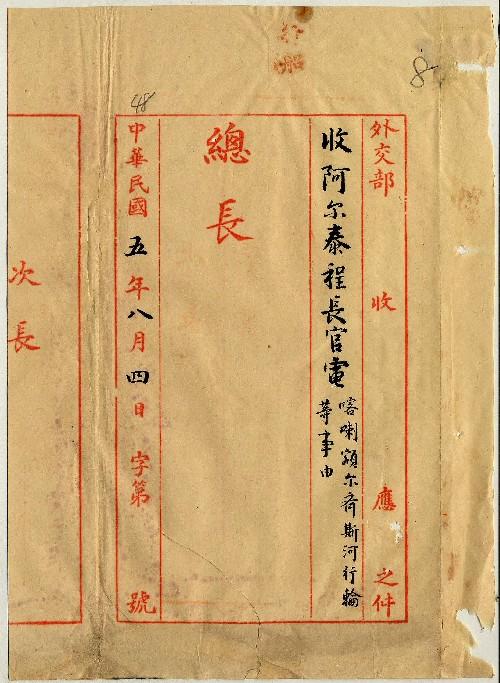 8
外交部 收 應 之件
收阿尔泰程長官電
喀喇額尔齊斯河行輪
等事由
總長
48
中華民國五年八月四日 字第 號
次長